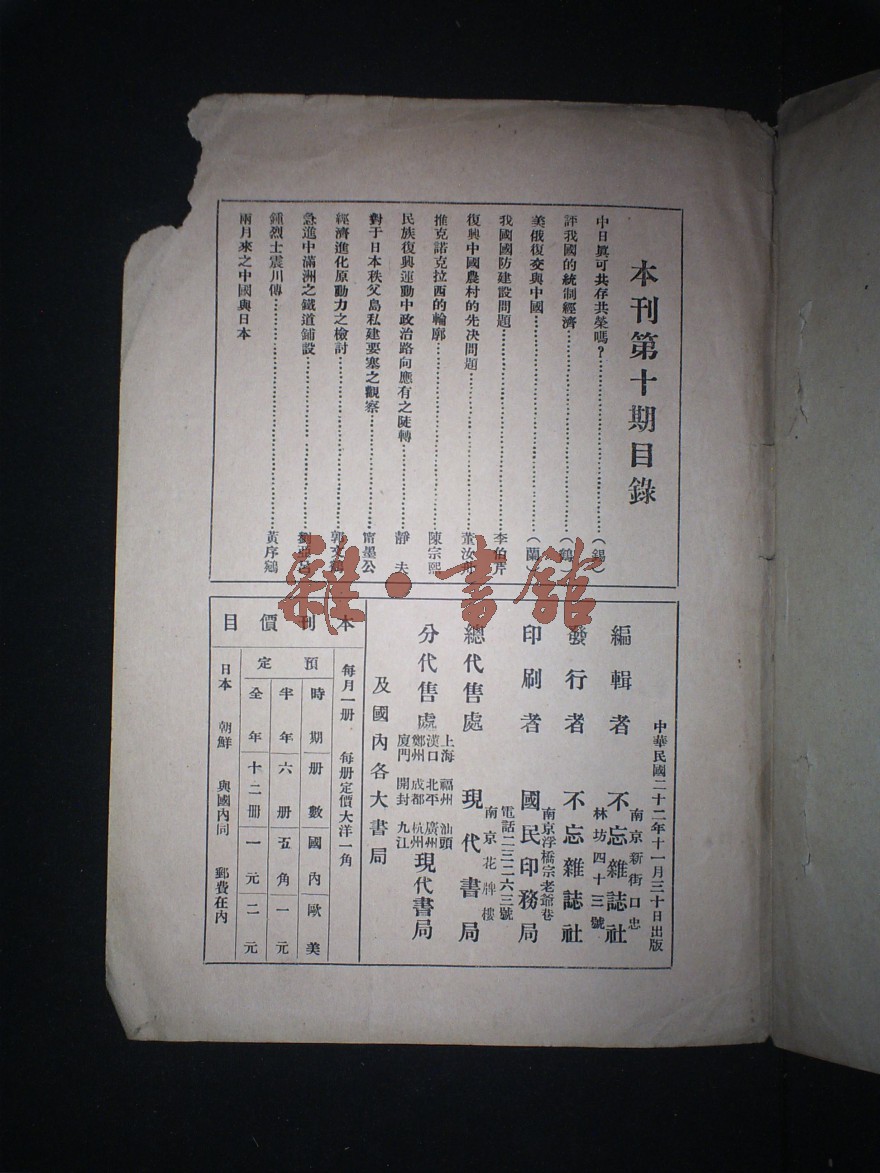 本刊第十期目錄
中日眞可共存共榮嗎？……(錫)
評我國的統制經濟……(鶴)
美俄復交與中國……(蘭)
我國國防建設問題……李伯芹
復興中國農村的先决問題……董汝舟
推克諾克拉西的輪廓……陳宗熙
民族復興運動中政治路向應有之陡轉……靜夫
對于日本秩父島私建要塞之觀察……甯墨公
經濟進化原動力之檢討……郭文鶴
急進中滿洲之鐵道鋪設……劉亞
鍾烈士震川傳……黃序鵷
兩月來之中國與日本
中華民國二十二年十一月三十日出版
編輯者 不忘雜誌社
南京新街口忠林坊四十三號
發行者 不忘雜誌社
印刷者 國民印務局
南京浮橋宗老爺巷
電話二三二六三號
總代售處 現代書局
南京花牌樓
分代售處 現代書局
上海 福州 汕頭
漢口 北平 廣州
鄭州 成都 杭州
廈門 開封 九江
及國內各大書局
本刊價目
每月一册 每册定價大洋一角
預定
時期 册數 國內 歐美
半年 六册 五角 一元
全年 十二册 一元 二元
日本 朝鮮 與國內同 郵費在內
雜·書館